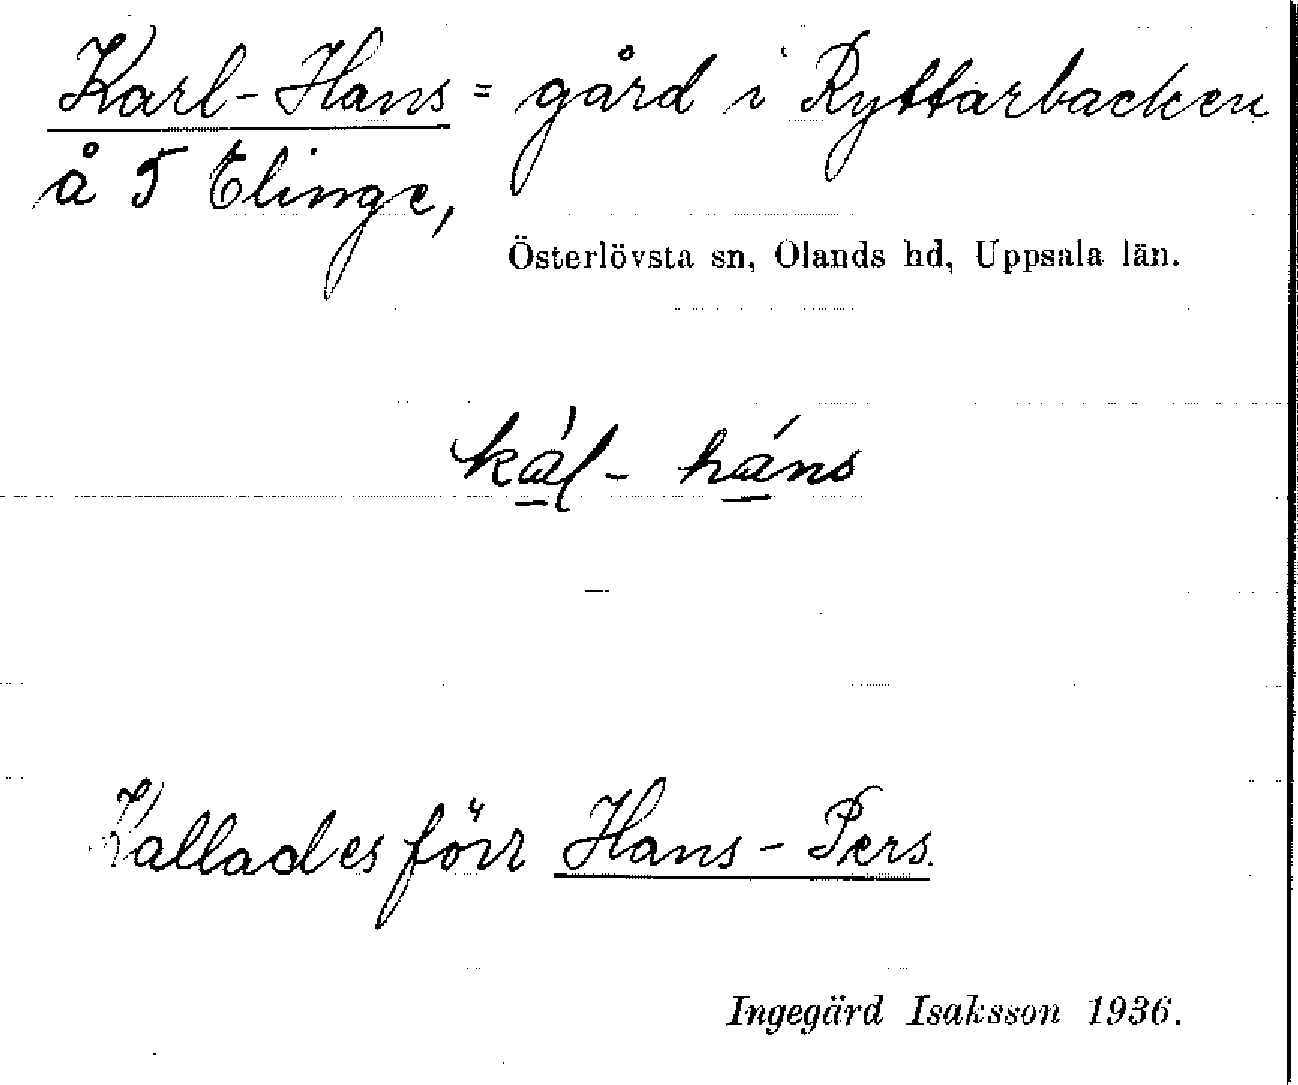 Karl-Hans = gård i Ryttarbacken
å 5 Elinge,
Österlövsta sn, Olands hd, Uppsala län.
kál - háns
Kallades förr Hans-Pers.
Ingegärd Isaksson 1936.